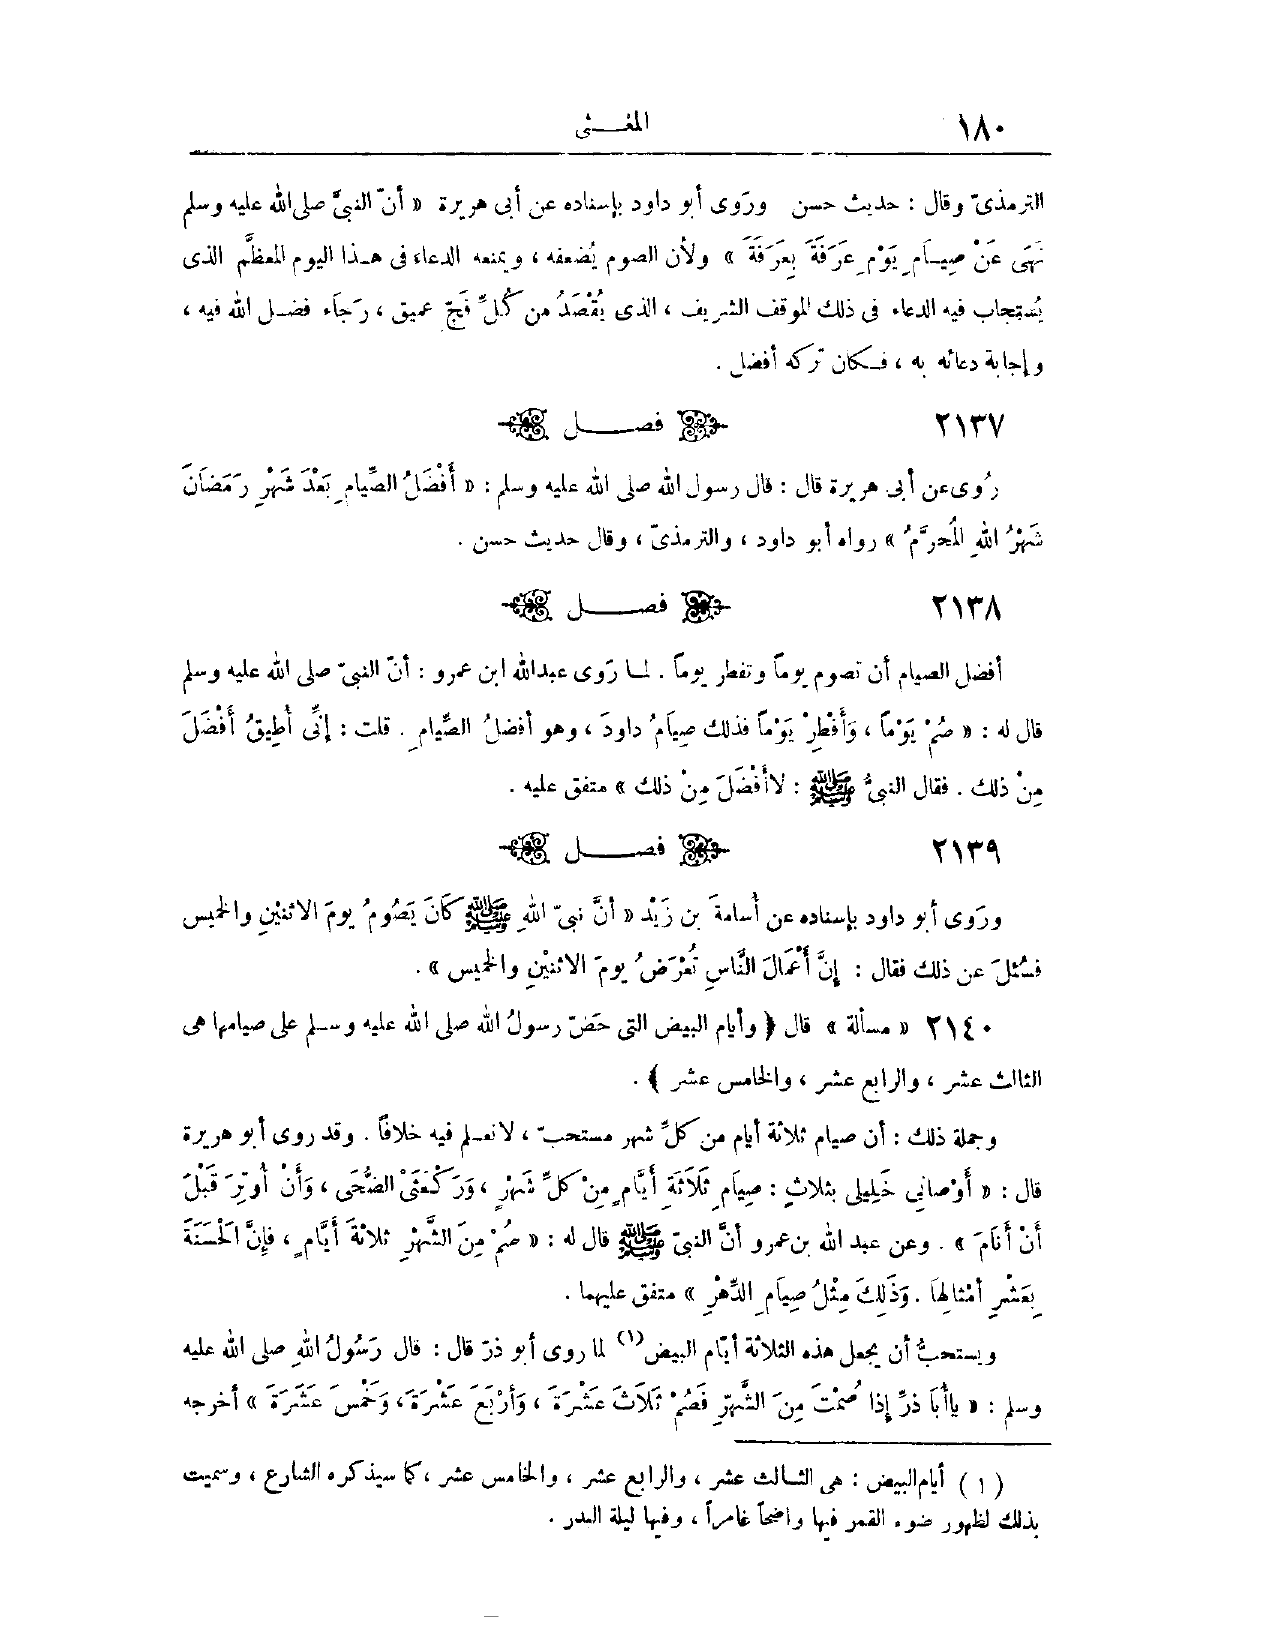 ١٨٠ المغــنى
الترمذىّ وقال : حديث حسن ورَوى أبو داود بإسناده عن أبى هريرة « أنّ النبىَّ صلى الله عليه وسلم
نَهَى عَنْ صِيـَامِ يَوْمِ عَرَفَةَ بِعَرَفَةَ » ولأن الصوم يُضعفه ، ويمنعه الدعاء فى هـذا اليوم المعظَّم الذى
يُستجاب فيه الدعاء فى ذلك الموقف الشريف ، الذى يُقْصَدُ من كُلِّ فَجّ عميق ، رَجَاء فضـل الله فيه ،
وإجابة دعائه به ، فـكان تركه أفضل .
٢١٣٧ فصــل
رُوى عن أبى هريرة قال : قال رسول الله صلى الله عليه وسلم : « أَفْضَلُ الصِّيامِ بَعْدَ شَهْرِ رَمَضَانَ
شَهْرُ اللهِ المُحرَّمُ » رواه أبو داود ، والترمذىّ ، وقال حديث حسن .
٢١٣٨ فصــل
أفضل الصيام أن تصوم يوماً وتفطر يوماً . لمـا رَوى عبدالله ابن عمرو : أنّ النبىّ صلى الله عليه وسلم
قال له : « صُمْ يَوْماً ، وَأَفْطِرْ يَوْماً فذلك صِيَامُ داودَ ، وهو أفضلُ الصِّيامِ . قلت : إنِّى أُطِيقُ أَفْضَلَ
مِنْ ذلك . فقال النبىُّ ﷺ : لا أَفْضَلَ مِنْ ذلك » متفق عليه .
٢١٣٩ فصــل
ورَوى أبو داود بإسناده عن أُسامةَ بن زَيْد « أنَّ نبىّ اللهِ ﷺ كَانَ يَصُومُ يومَ الاثنيْنِ والخميس
فسُئلَ عن ذلك فقال : إنَّ أَعْمَالَ النَّاسِ تُعْرَضُ يومَ الاثنيْنِ والخميس » .
٢١٤٠ « مسألة » قال ﴿ وأيام البيض التى حَضّ رسولُ الله صلى الله عليه وسـلم على صيامها هى
الثالث عشر ، والرابع عشر ، والخامس عشر ﴾ .
وجملة ذلك : أن صيام ثلاثة أيام من كلِّ شهر مستحبّ ، لا نعـلم فيه خلافاً . وقد روى أبو هريرة
قال : « أَوْصانِى خَلِيلِى بثلاثٍ : صِيَامِ ثَلَاثَةِ أَيَّامٍ مِنْ كلِّ شَهْرٍ ، وَرَكْعَتَىْ الضُّحَى ، وَأَنْ أُوتِرَ قَبْلَ
أَنْ أَنَامَ » . وعن عبد الله بن عمرو أنَّ النبىّ ﷺ قال له : « صُمْ مِنَ الشَّهْرِ ثلاثةَ أَيَّامٍ ، فإنَّ الْحَسَنَةَ
بِعَشْرِ أمْثالِهَا . وَذَلِكَ مِثْلُ صِيَامِ الدَّهْرِ » متفق عليهما .
ويستحبُّ أن يجعل هذه الثلاثة أيّام البيض(١) لما روى أبو ذرّ قال : قال رَسُولُ اللهِ صلى الله عليه
وسلم : « ياأَبَا ذرٍّ إذا صُمْتَ مِنَ الشَّهْرِ فَصُمْ ثَلَاثَ عَشْرَةَ ، وَأرْبَعَ عَشْرَةَ ، وَخَمْسَ عَشَرَةَ » أخرجه
( ١ ) أيام البيض : هى الثـالث عشر ، والرابع عشر ، والخامس عشر ، كما سيذكره الشارع ، وسميت
بذلك لظهور ضوء القمر فيها واضحاً غامراً ، وفيها ليلة البدر .